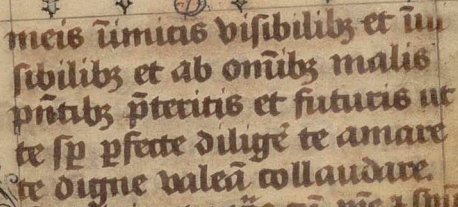 meis īimicis visibilibꝫ et īui
sibilibꝫ et ab om̄ibꝫ malis
pn̄tibꝫ p̄teritis et futuris ut
te sꝑ ꝑfecte dilige᷑ te amare
te digne valeā collaudare.